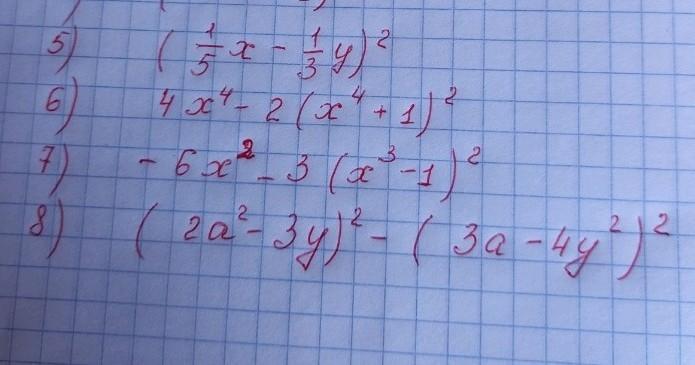 5) (1/5 x - 1/3 y)²
6) 4x⁴ - 2(x⁴ + 1)²
7) - 6x² - 3(x³ - 1)²
8) (2a² - 3y)² - (3a - 4y²)²